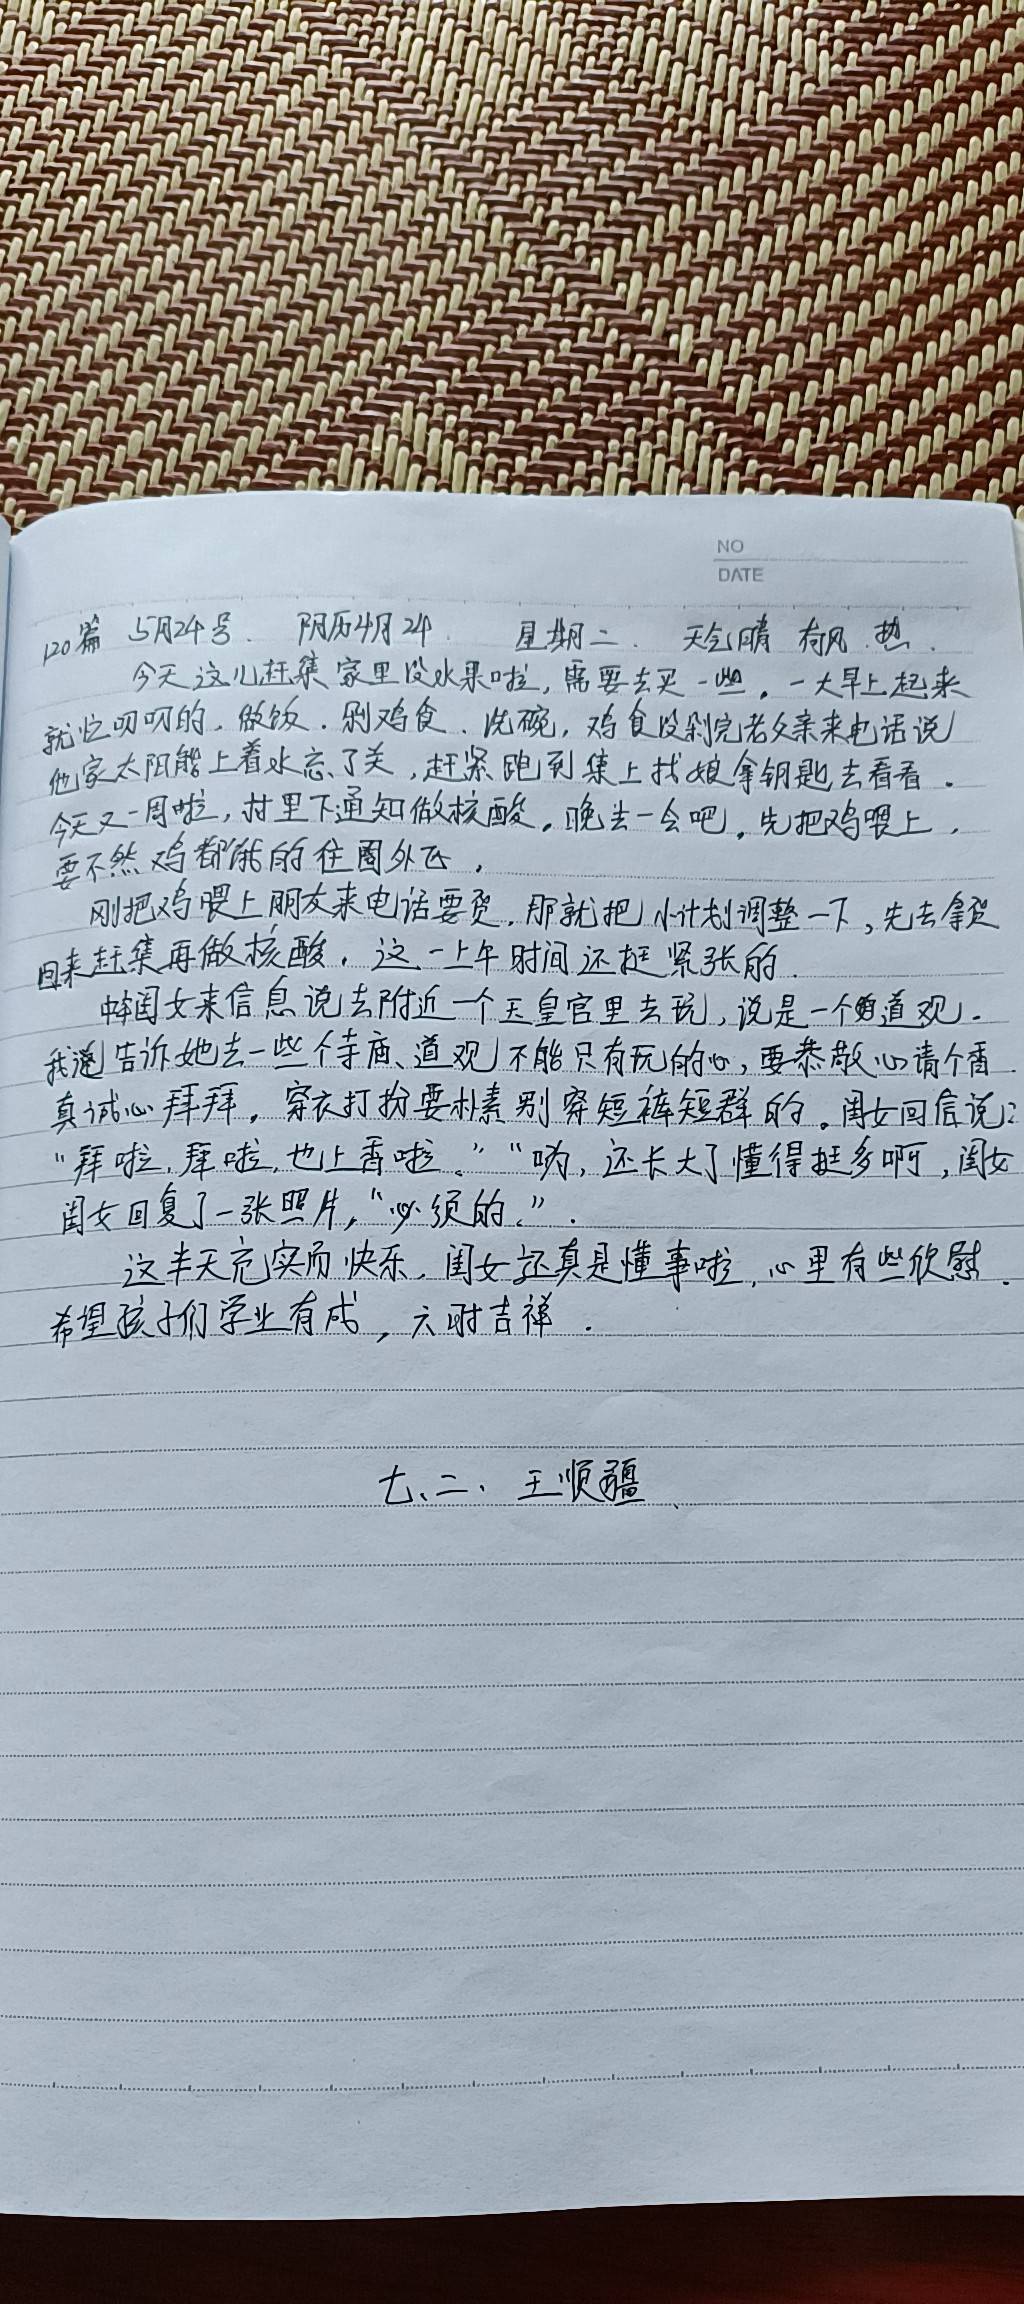 NO
DATE
120篇 5月24号. 阴历4月24. 星期二. 天气晴 有风.热.
今天这儿赶集家里没水果啦,需要去买一些。一大早上起来
就忙叨叨的.做饭.剁鸡食.洗碗,鸡食没剁完老父亲来电话说
他家太阳能上着水忘了关,赶紧跑到集上找娘拿钥匙去看看.
今天又一周啦,村里下通知做核酸。晚去一会吧。先把鸡喂上,
要不然鸡都饿的往圈外飞,
刚把鸡喂上朋友来电话要货.那就把小计划调整一下,先去拿货
回来赶集再做核酸.这一上午时间还挺紧张的.
闺女来信息说去附近一个玉皇宫里去玩,说是一个道观.
我告诉她去一些个寺庙、道观不能只有玩的心,要恭敬心请个香.
真诚心拜拜。穿衣打扮要朴素别穿短裤短群的。闺女回信说:
“拜啦,拜啦,也上香啦。”“哟,还长大了懂得挺多啊,闺女
闺女回复了一张照片,“必须的。”.
这半天充实而快乐.闺女还真是懂事啦,心里有些欣慰.
希望孩子们学业有成,六时吉祥.
七、二、王顺疆